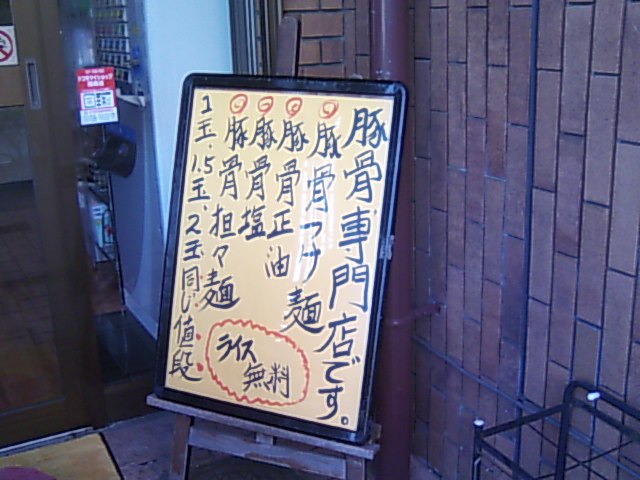 豚骨専門店です。
豚骨つけ麺
豚骨正油
豚骨塩
豚骨担々麺
1玉、1.5玉、2玉同じ値段
ライス
無料